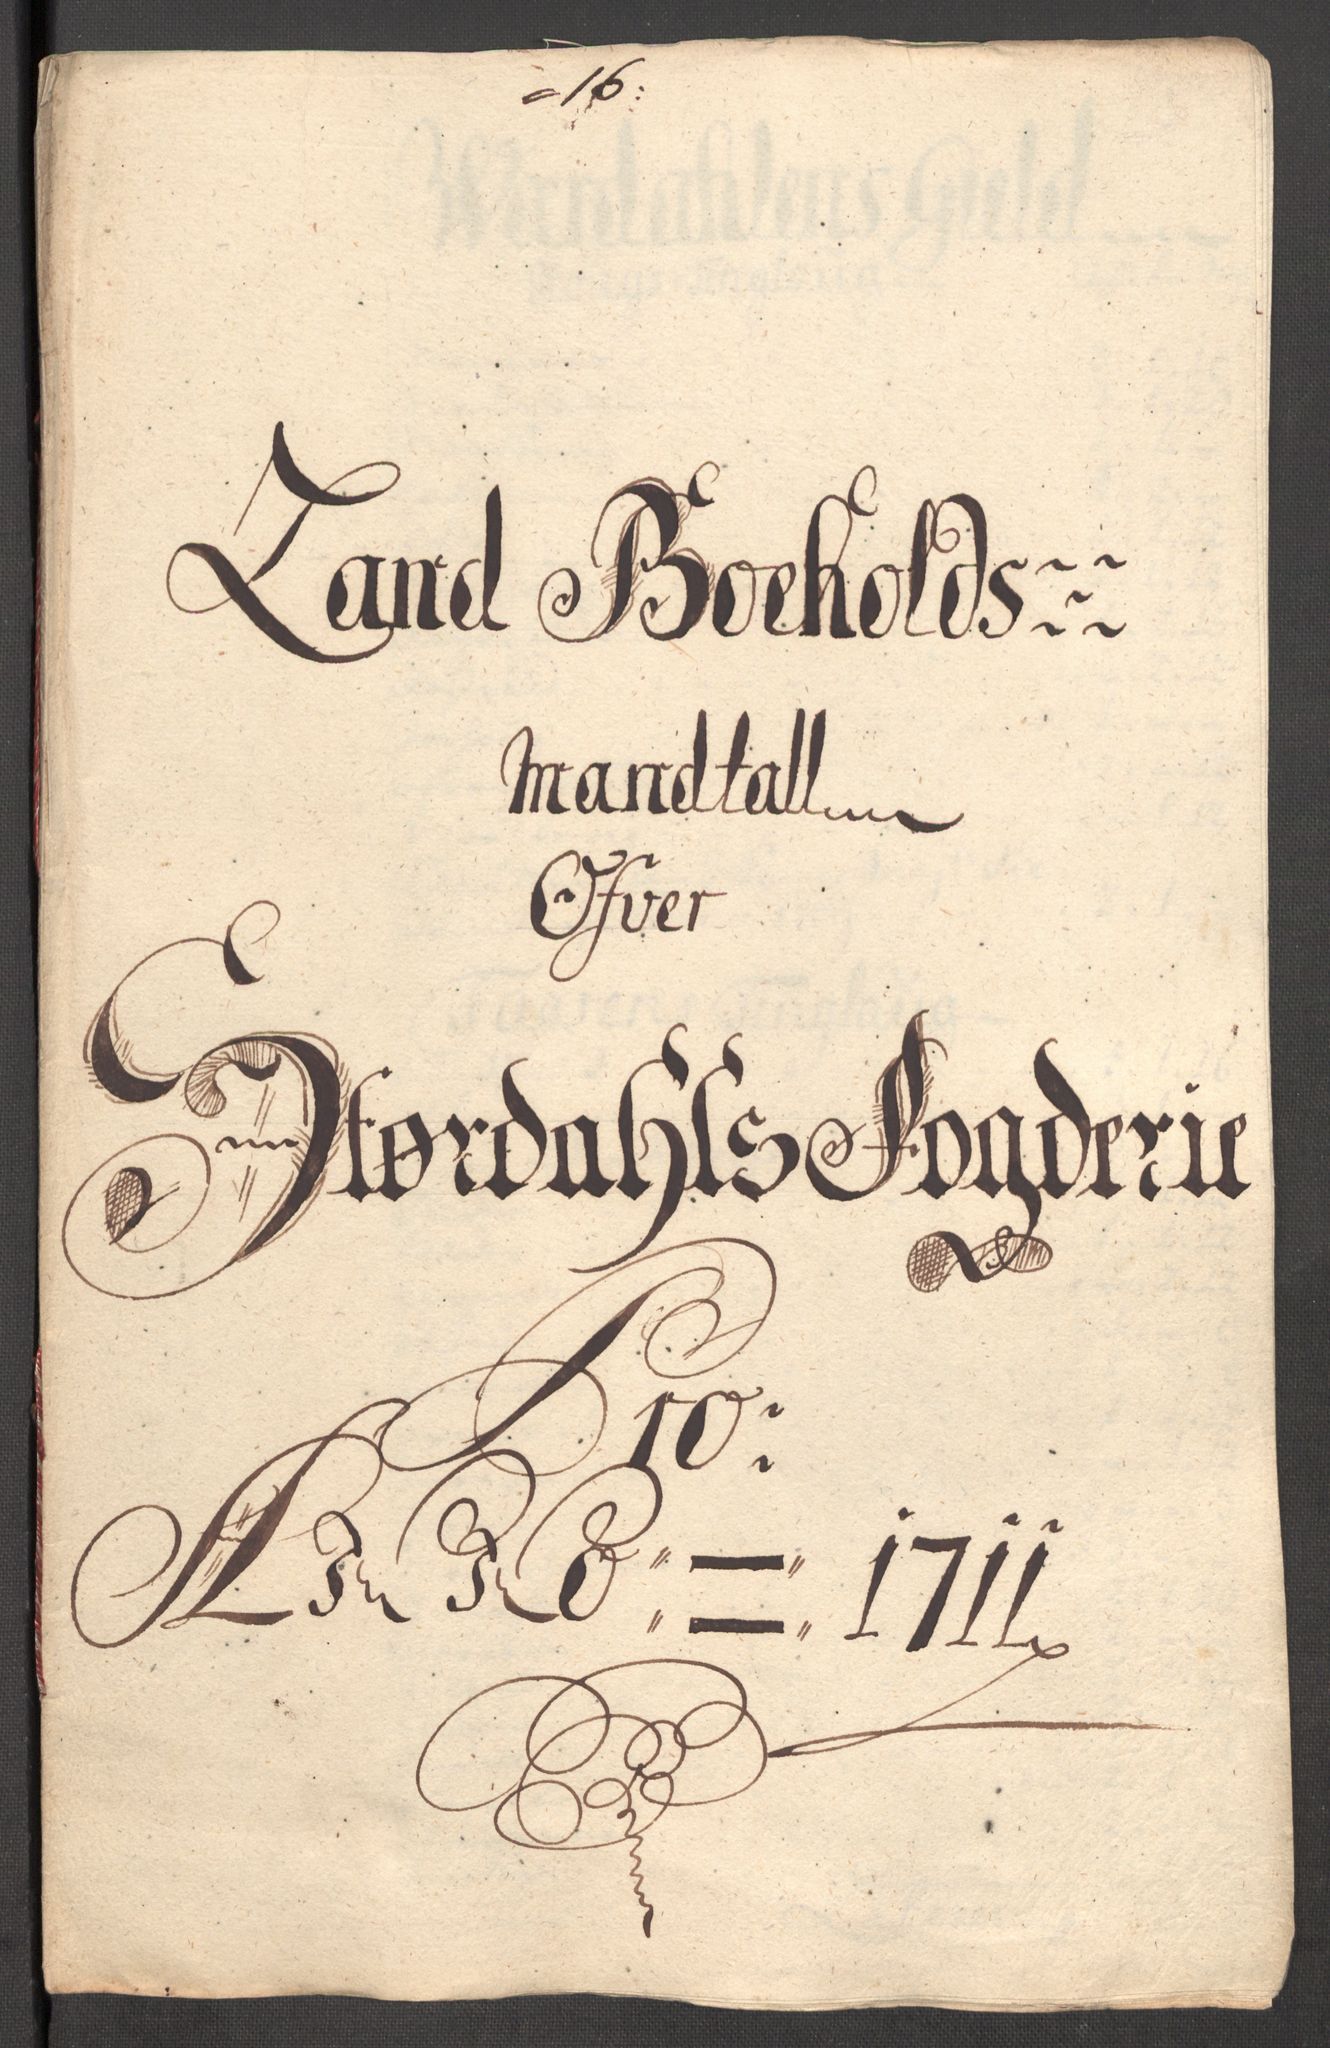 =16:
Land Boeholds
mandtall
Ofver
Størdahls Fogderie
Pro:
ANNO = 1711